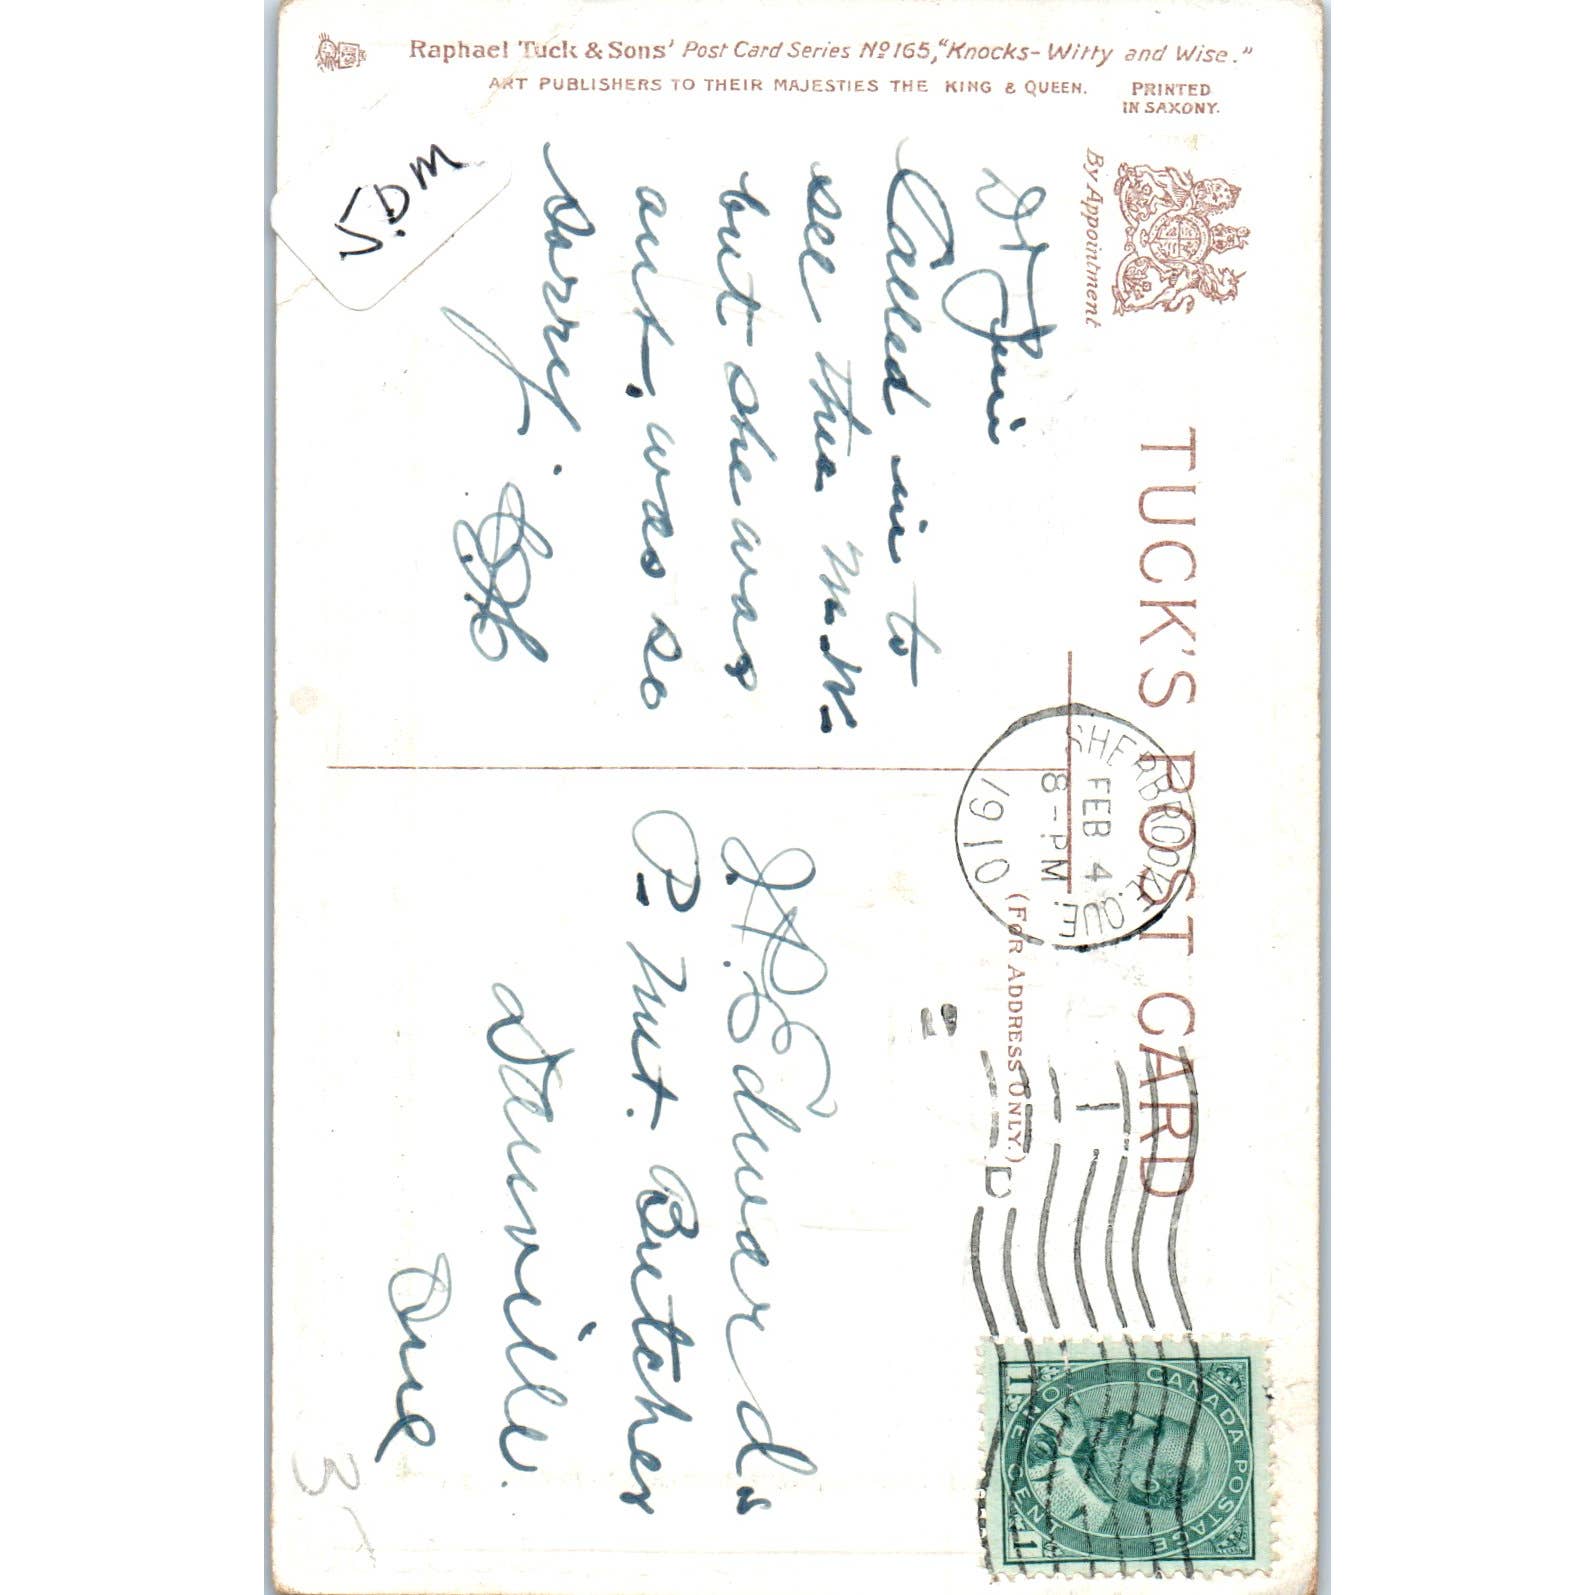 Raphael Tuck & Sons' Post Card Series No 165, "Knocks-Witty and Wise."
ART PUBLISHERS TO THEIR MAJESTIES THE KING & QUEEN.
PRINTED
IN SAXONY.
By Appointment
TUCK'S POST CARD
(FOR ADDRESS ONLY.)
SHERBROOKE QUE.
FEB 4
8-PM
1910
CANADA POSTAGE
ONE CENT
1 1
Called in to
see this M.W.
but she was
out. was so
sorry.
J. A. Edwards
P. Mut. Butcher
Danville.
Que
3-